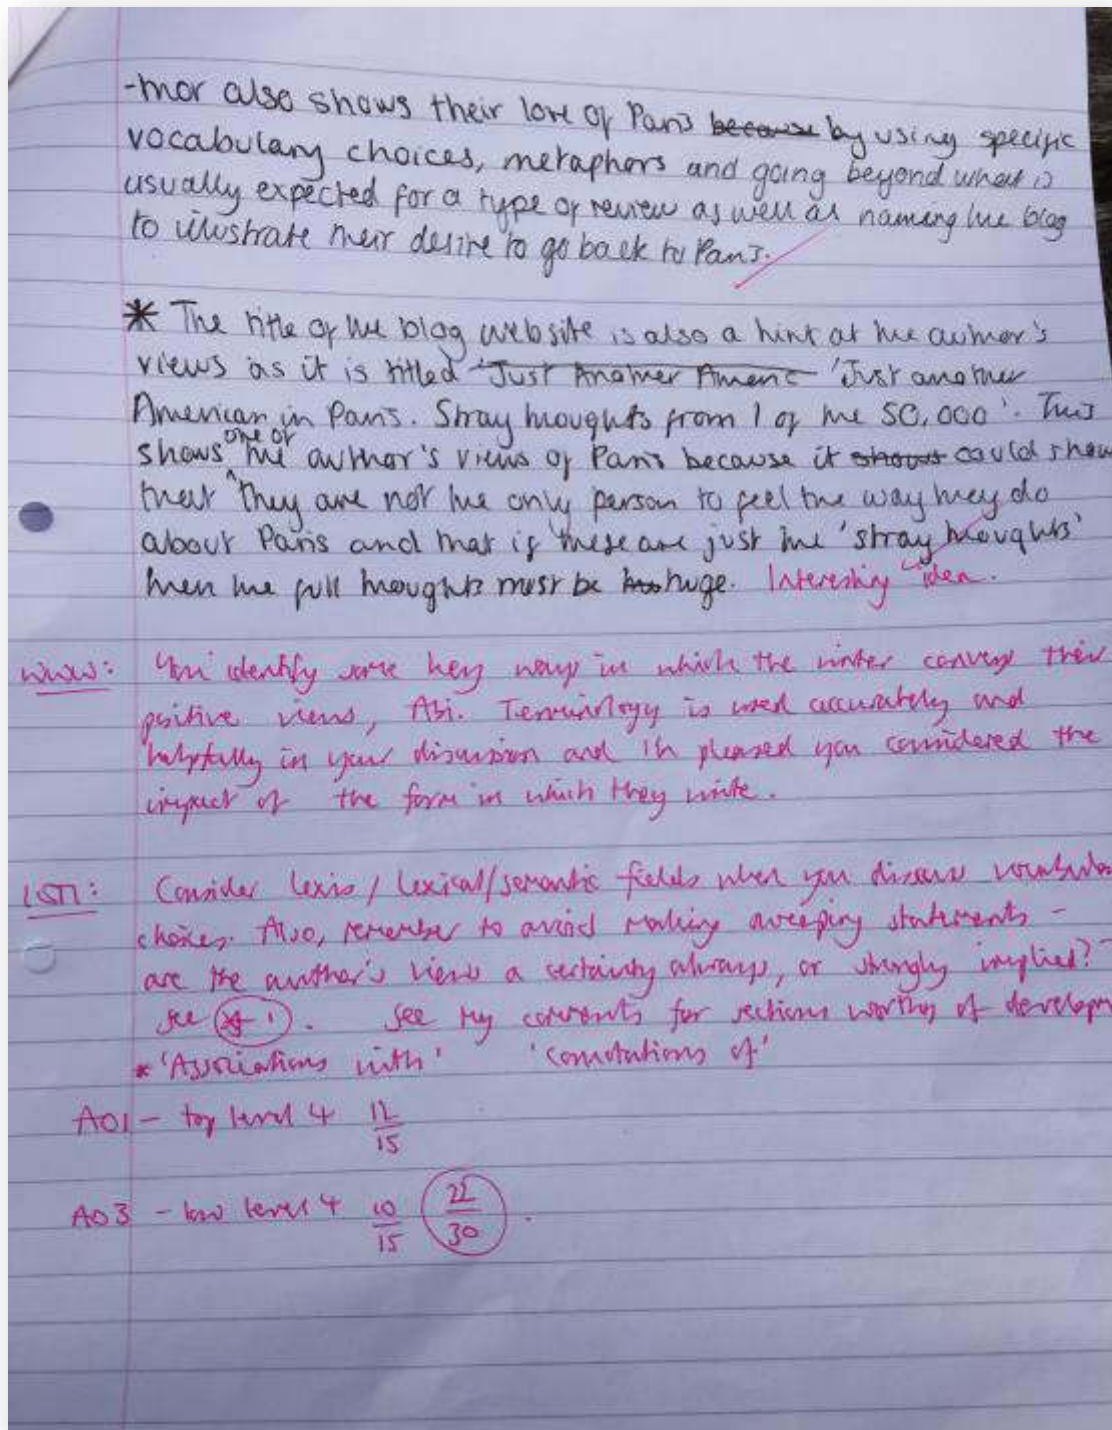 -mor also shows their love of Paris because by using specific
vocabulary choices, metaphors and going beyond what is
usually expected for a type of review as well as naming the blog
to illustrate their desire to go back to Paris.
* The title of the blog website is also a hint at the author's
views as it is titled 'Just Another Americ 'Just another
American in Paris. Stray thoughts from 1 of the 50,000'. This
shows one of the author's views of Paris because it shows could show
that they are not the only person to feel the way they do
about Paris and that if these are just the 'stray thoughts'
then the full thoughts must be huge. Interesting idea.
WWW: You identify some key ways in which the writer conveys their
positive views, Abi. Terminology is used accurately and
helpfully in your discussion and I'm pleased you considered the
impact of the form in which they write.
Consider lexis / lexical/semantic fields when you discuss vocabula
choices. Also, remember to avoid making sweeping statements -
are the author's views a certainty always, or strongly implied? -
see * 1. See my comments for sections worthy of developm
* 'Associations with' 'connotations of'
AO1 - top level 4 12/15
AO3 - low level 4 10/15 22/30.